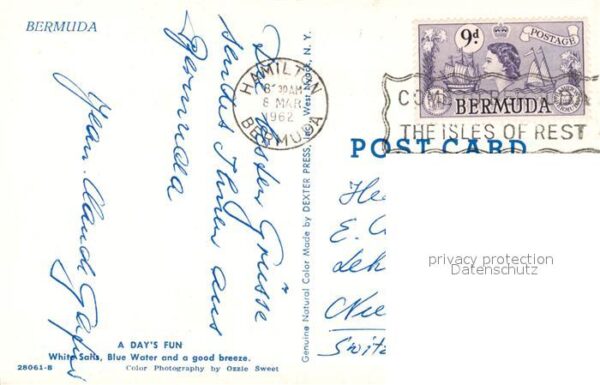 BERMUDA
Die besten Grüsse
sendet Ihnen aus
Bermuda
Jean-Claude
A DAY'S FUN
White Sails, Blue Water and a good breeze.
28061-B
Color Photography by Ozzie Sweet
Genuine Natural Color Made by DEXTER PRESS, INC. West Nyack, N. Y.
HAMILTON
8 30 AM
8 MAR
1962
BERMUDA
9d
POSTAGE
BERMUDA
THE ISLES OF REST
POST CARD
E.
privacy protection
Datenschutz